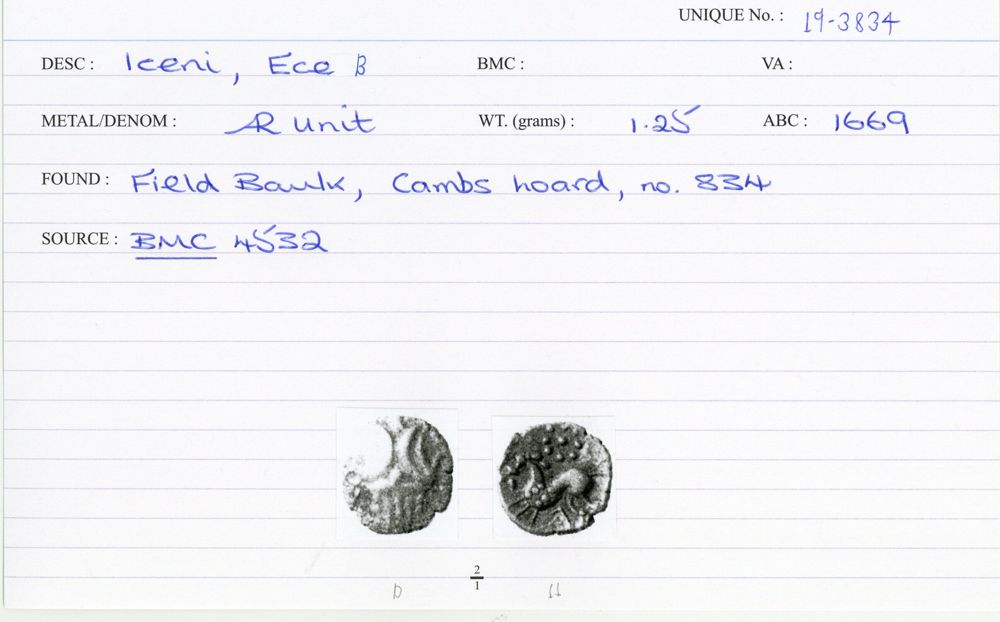 UNIQUE No. : 19-3834
DESC : Iceni, Ece B BMC : VA :
METAL/DENOM : AR Unit WT. (grams) : 1.25 ABC : 1669
FOUND : Field Baulk, Cambs hoard, no. 834
SOURCE : BMC 4532
2
1